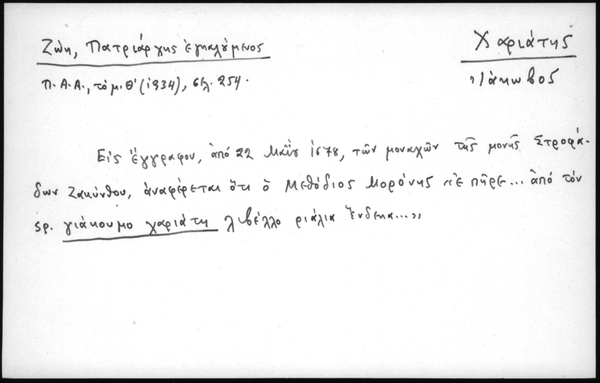 Ζώη, Πατριάρχης ἐγκαλούμενος
Χαριάτης
Π.Α.Α., τόμ. Θ' (1934), σελ. 254.
Ἰάκωβος
Εἰς ἔγγραφον, ἀπό 22 Μαΐου 1678, τῶν μοναχῶν τῆς μονῆς Στροφά-
δων Ζακύνθου, ἀναφέρεται ὅτι ὁ Μεθόδιος Μορόνης «ἐπῆρε... ἀπό τόν
sρ. γιάκουμο χαριάτη λιβέλλο ριάλια ἕνδεκα...»